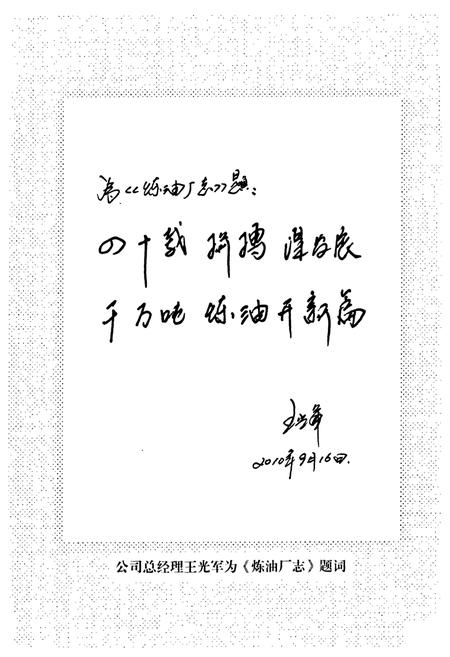 为《炼油厂志》题：
四十载 拼搏 谋发展
千万吨 炼油 开新篇
王光军
2010年9月16日.
公司总经理王光军为《炼油厂志》题词